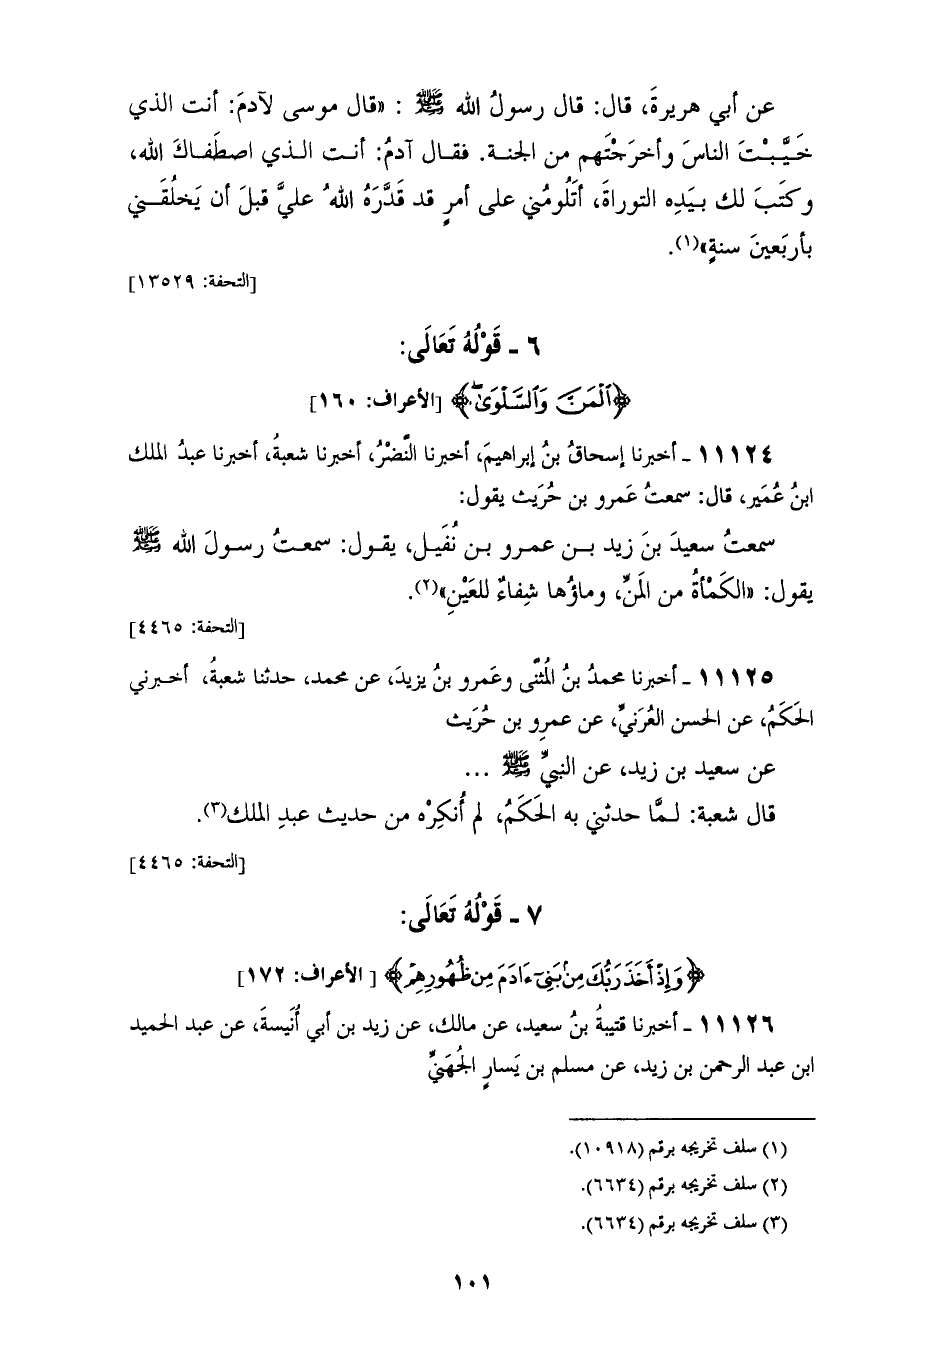 عن أبي هريرةَ، قال: قال رسولُ الله ﷺ : «قال موسى لآدمَ: أنت الذي
خَيَّبْتَ الناسَ وأخرَجْتَهم من الجنة. فقال آدمُ: أنت الذي اصطَفاكَ الله،
وكتَبَ لك بيَدِه التوراةَ، أتَلُومُني على أمرٍ قد قَدَّرَهُ اللهُ عليَّ قبلَ أن يَخلُقَني
بأربَعينَ سنةٍ»(١).
[التحفة: ١٣٥٢٩]
٦ ـ قَوْلُهُ تَعَالَى:
﴿ٱلْمَنَّ وَٱلسَّلْوَىٰۖ﴾ [الأعراف: ١٦٠]
١١١٢٤ ـ أخبرنا إسحاقُ بنُ إبراهيمَ، أخبرنا النَّضْرُ، أخبرنا شعبةُ، أخبرنا عبدُ الملك
ابنُ عُمَير، قال: سمعتُ عَمرو بن حُرَيث يقول:
سمعتُ سعيدَ بنَ زيد بـن عمرو بن نُفَيل، يقول: سمعتُ رسولَ الله ﷺ
يقول: «الكَمْأةُ من المَنِّ، وماؤُها شِفاءٌ للعَيْنِ»(٢).
[التحفة: ٤٤٦٥]
١١١٢٥ ـ أخبرنا محمدُ بنُ المُثنَّى وعَمرو بنُ يزيدَ، عن محمد، حدثنا شعبةُ، أخبرني
الحَكَمُ، عن الحسن العُرَنيِّ، عن عمرِو بن حُرَيث
عن سعيد بن زيد، عن النبيِّ ﷺ ...
قال شعبة: لـمَّا حدثني به الحَكَمُ، لم أُنكِرْه من حديث عبدِ الملك(٣).
[التحفة: ٤٤٦٥]
٧ ـ قَوْلُهُ تَعَالَى:
﴿وَإِذْ أَخَذَ رَبُّكَ مِنۢ بَنِىٓ ءَادَمَ مِن ظُهُورِهِمْ﴾ [ الأعراف: ١٧٢]
١١١٢٦ ـ أخبرنا قتيبةُ بنُ سعيد، عن مالك، عن زيد بن أبي أُنَيسةَ، عن عبد الحميد
ابن عبد الرحمن بن زيد، عن مسلم بن يَسارٍ الجُهَنيِّ
(١) سلف تخريجه برقم (١٠٩١٨).
(٢) سلف تخريجه برقم (٦٦٣٤).
(٣) سلف تخريجه برقم (٦٦٣٤).
١٠١